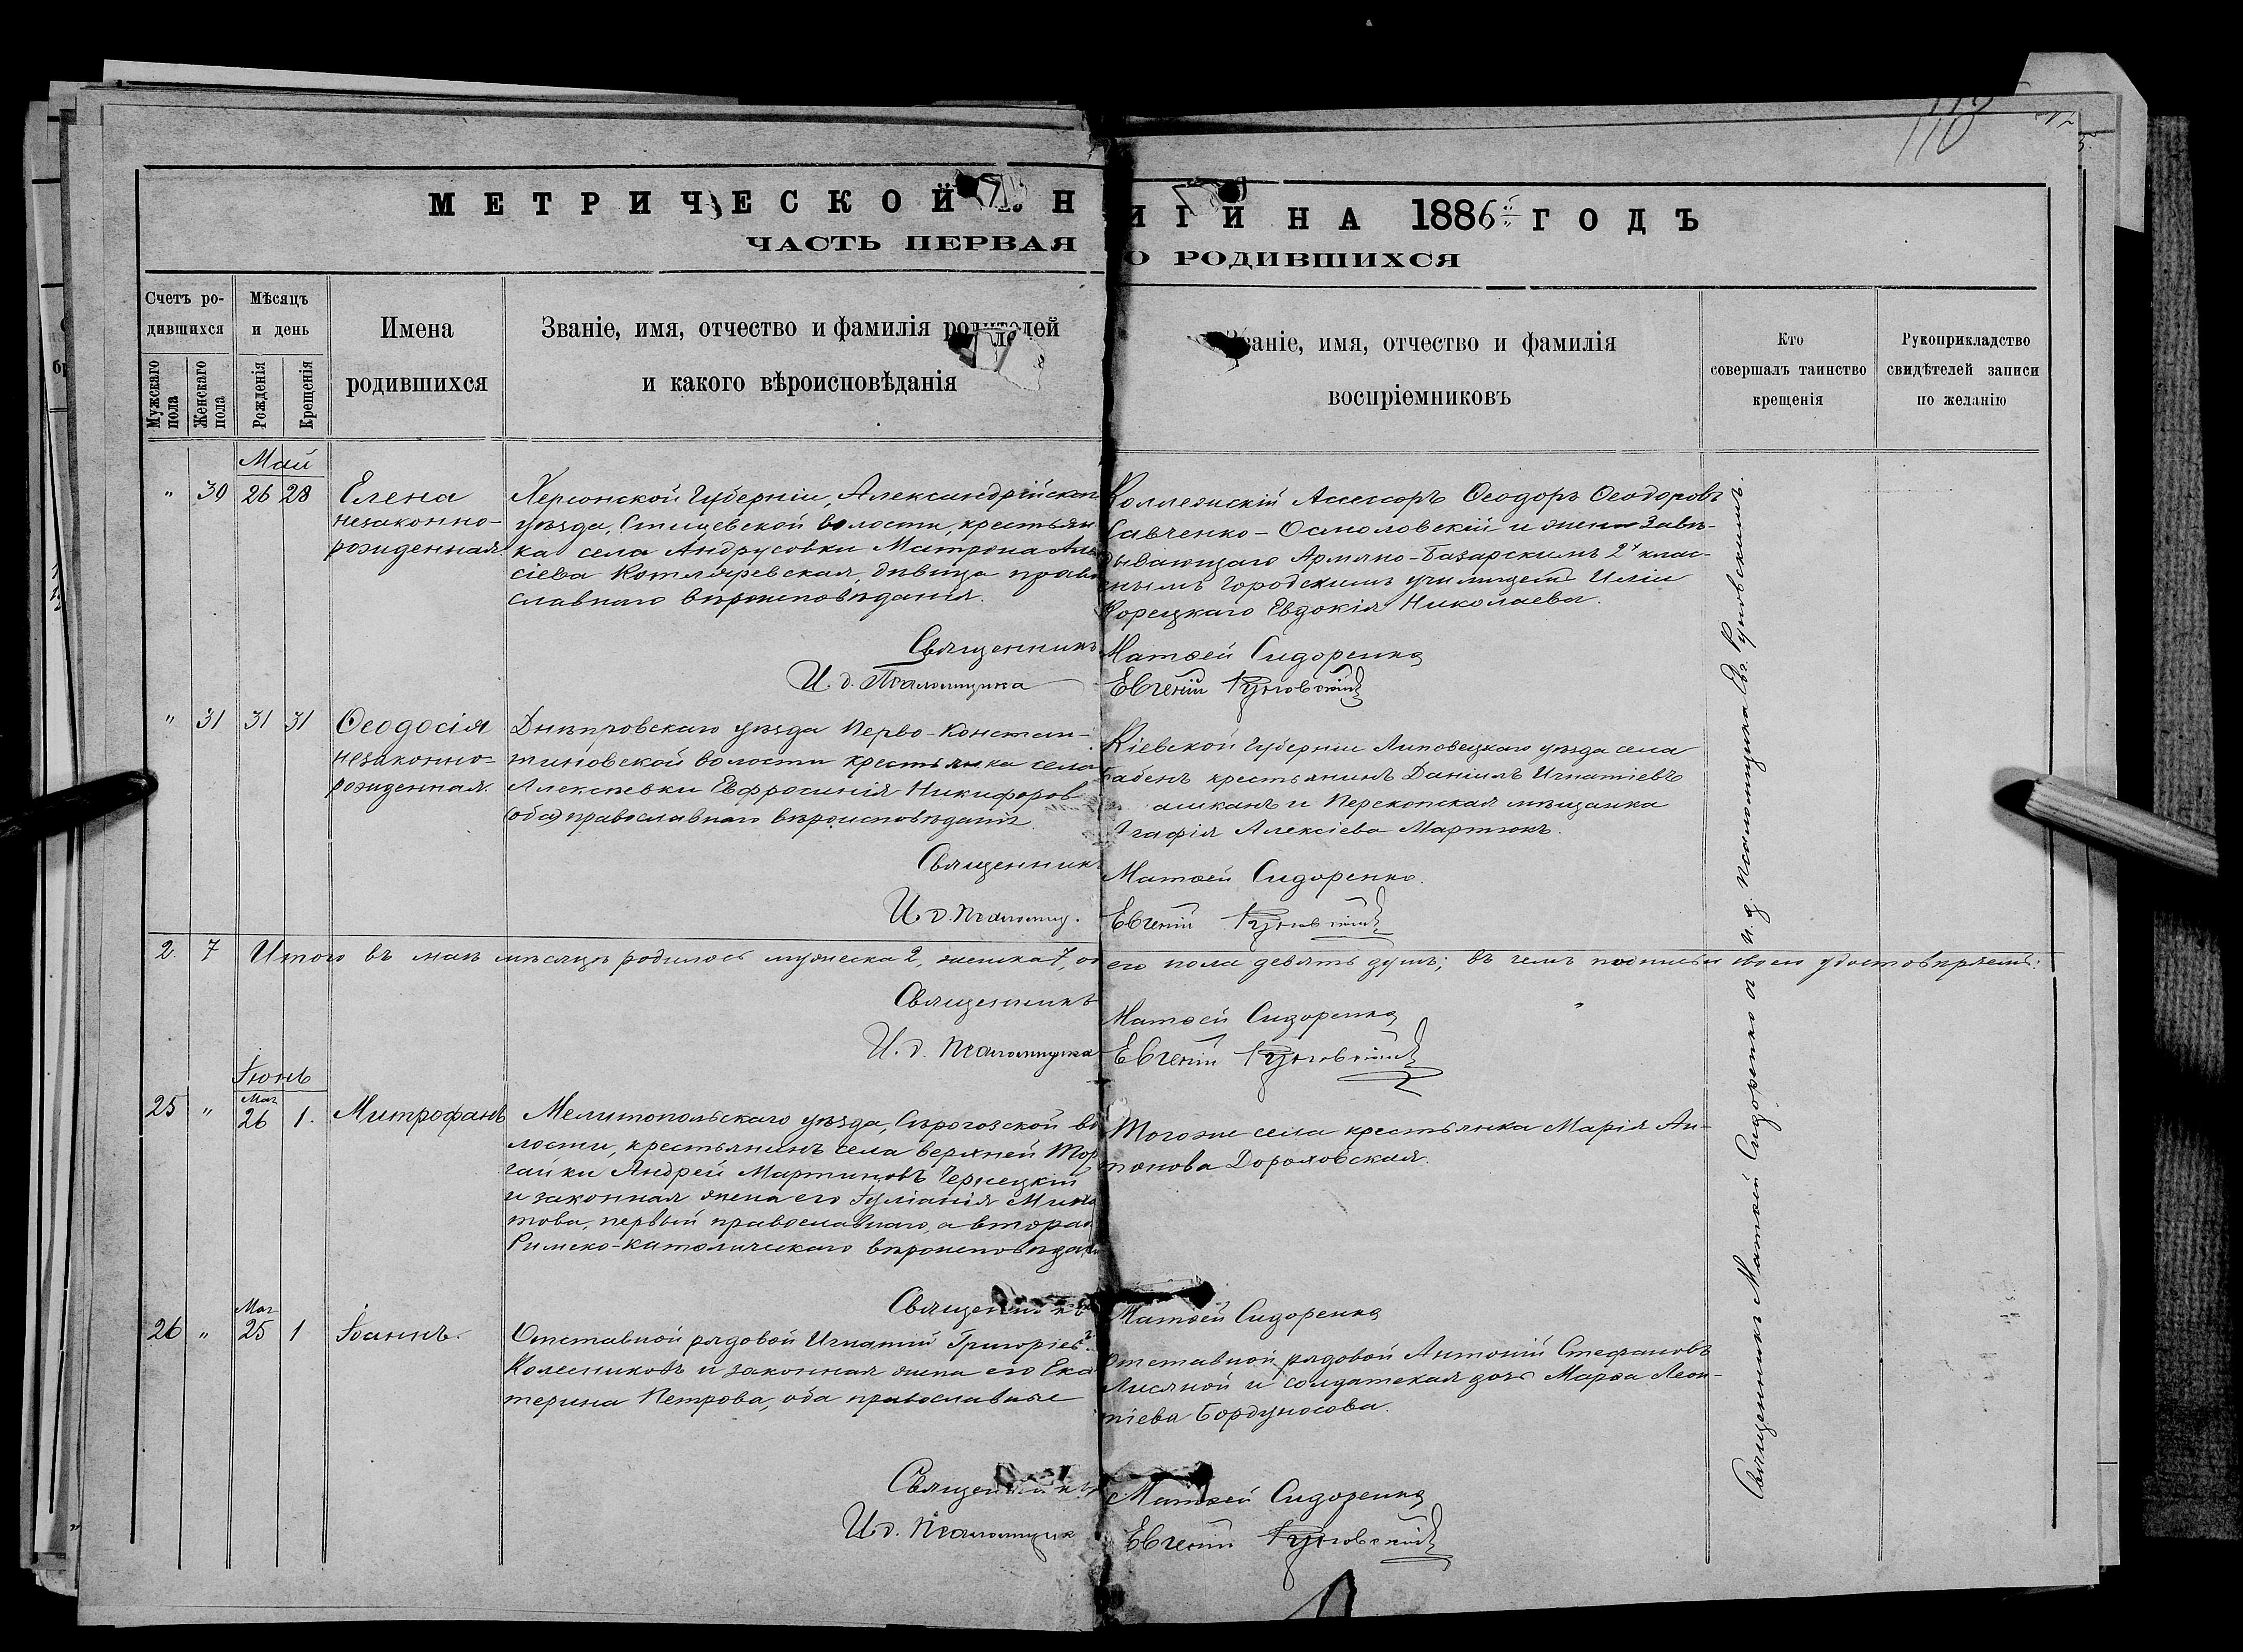 118
МЕТРИЧЕСКОЙ КНИГИ НА 1886 ГОДЪ
ЧАСТЬ ПЕРВАЯ О РОДИВШИХСЯ
Счетъ родившихся
Мужскаго пола
Женскаго пола
Мѣсяцъ и день
Рожденія
Крещенія
Имена
родившихся
Званіе, имя, отчество и фамилія родителей
и какого вѣроисповѣданія
Званіе, имя, отчество и фамилія
воспріемниковъ
Кто
совершалъ таинство
крещенія
Рукоприкладство
свидѣтелей записи
по желанію
Май
" 30 26 28
Елена
незаконно-
рожденная.
Херсонской Губерніи, Александрійскаго
уѣзда, волости, крестьян
ка села Андрусовки Матрона
сіева Котляревская, дѣвица право
славнаго вѣроисповѣданія.
Коллежскій Ассессоръ Ѳеодоръ Ѳеодоровъ
Савченко-Осмоловскій и жена Завѣ-
дывающаго Армяно-Базарскимъ 2х клас-
снымъ городскимъ училищемъ Иліи
Корецкаго Евдокія Николаева.
Священникъ Матѳей Сидоренко
И. д. Псаломщика Евгеній
" 31 31 31
Ѳеодосія
незаконно-
рожденная.
Днѣпровскаго уѣзда Перво-Констан-
тиновской волости крестьянка села
Алексѣевки Евфросинія Никифоров
(оба) православнаго вѣроисповѣданія
Кіевской Губерніи Липовецкаго уѣзда села
крестьянинъ Даніилъ Игнатіевъ
и Перекопская мѣщанка
Агафія Алексіева Мартюкъ.
Священникъ Матѳей Сидоренко.
И. д. Псаломщ. Евгеній
2. 7 Итого въ маѣ мѣсяцѣ родилось мужеска 2, женска 7, обоего пола девять душъ; въ чемъ подписью своею удостовѣряемъ:
Священникъ Матѳей Сидоренко
И. д. Псаломщика Евгеній
Іюнь
25 " Мая 26 1.
Митрофанъ
Мелитопольскаго уѣзда, Сѣрогозской во
лости, крестьянинъ села верхней Тор
гайки Андрей Мартиновъ Чернецкій
и законная жена его Іуліанія
това, первый православнаго, а вторая
Римско-католическаго вѣроисповѣданія
Тогоже села крестьянка Марія Ан-
тонова Дороховская.
Священникъ Матѳей Сидоренко
26 " Мая 25 1
Іоаннъ.
Отставной рядовой Игнатій Григоріевъ
Колесниковъ и законная жена его Ека
терина Петрова, оба православные
Отставной рядовой Антоній Стефановъ
Лисяной и солдатская дочь Марѳа Леон-
тіева Бордуносова.
Священникъ Матѳей Сидоренко
И. д. Псаломщика Евгеній
Священникъ Матѳей Сидоренко и и. д. Псаломщика Ев.